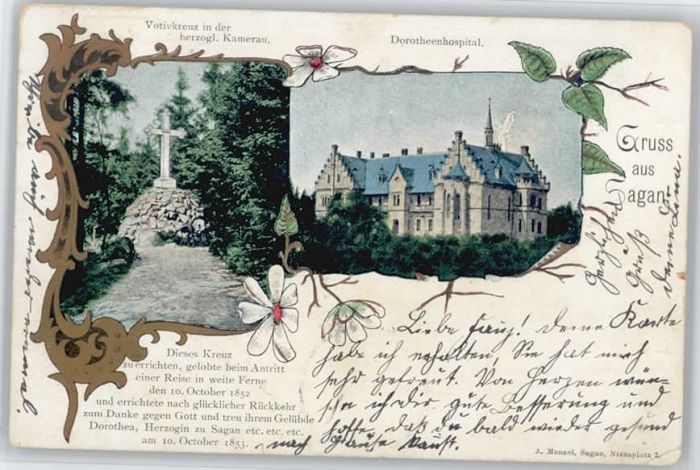 Votivkreuz in der
herzogl. Kamerau.
Dorotheenhospital.
Gruss
aus
Sagan.
Dieses Kreuz
zu errichten, gelobte beim Antritt
einer Reise in weite Ferne
den 10. October 1852
und errichtete nach glücklicher Rückkehr
zum Danke gegen Gott und treu ihrem Gelübde
Dorothea, Herzogin zu Sagan etc. etc. etc.
am 10. October 1853.
Liebe! deine Karte
habe ich erhalten, Sie hat mich
sehr gefreut. Von Herzen wün-
sche ich dir gute Besserung und
hoffe, daß du bald wieder gesund
nach Hause kannst.
Herzlichen
Gruß
deine
Schreibe auch wieder einmal.
A. Menzel, Sagan, Nizzaplatz 2.